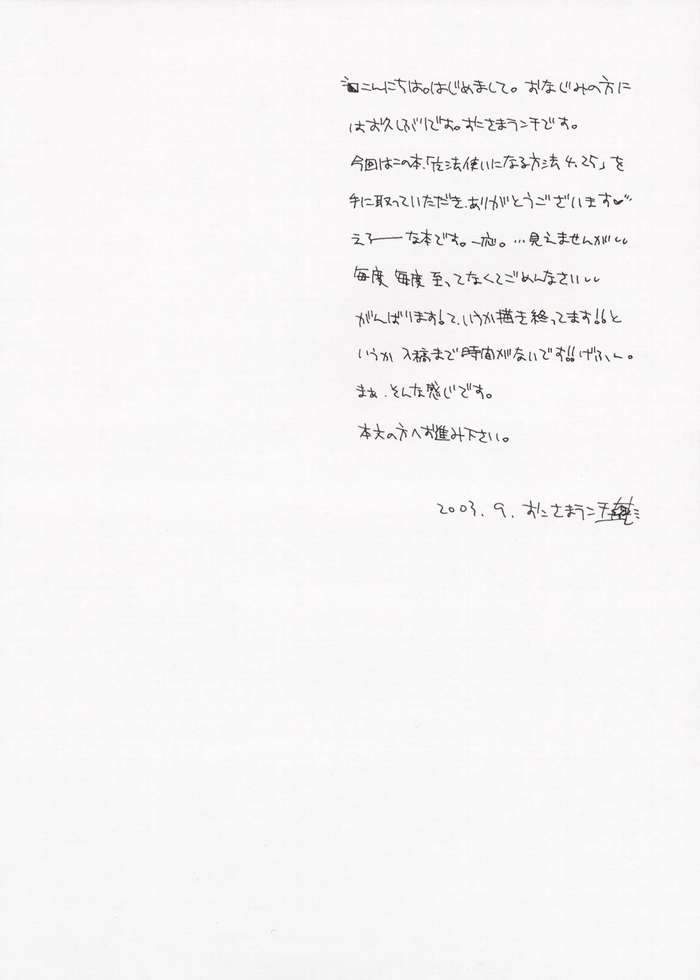 こんにちは。はじめまして。おなじみの方に
はお久しぶりです。おにさまランチです。
今回はこの本、「伝法使いになる方法4.25」を
手に取っていただき、ありがとうございます♥
えろーーな本です。一応。…見えませんが
毎度毎度至ってなくてごめんなさい
がんばります!て、いうか描き終ってます!!と
いうか入稿まで時間がないです!!げふ。
まぁ、そんな感じです。
本文の方へお進み下さい。
2003.9.おにさまランチ